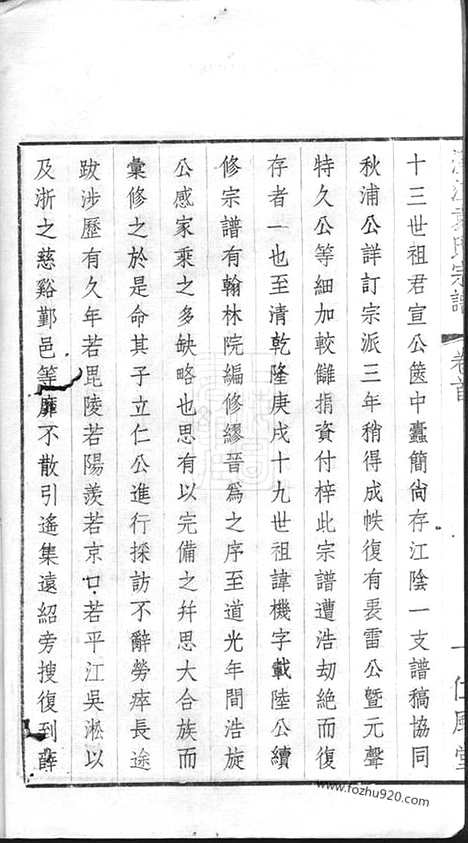 澄江袁氏宗譜 卷首 一 仁風堂
十三世祖君宣公篋中蠹簡尙存江陰一支譜稿協同
秋浦公詳訂宗派三年稍得成帙復有雷公暨元聲
特久公等細加較讎捐資付梓此宗譜遭浩劫絕而復
存者一也至清乾隆庚戌十九世祖諱機字載陸公續
修宗譜有翰林院編修繆晉爲之序至道光年間浩旋
公感家乘之多缺略也思有以完備之幷思大合族而
彙修之於是命其子立仁公進行採訪不辭勞瘁長途
跋涉歷有久年若毘陵若陽羨若京口若平江吳淞以
及浙之慈谿鄞邑等靡不散引遙集遠紹旁搜復到薛
www.fozhu920.com